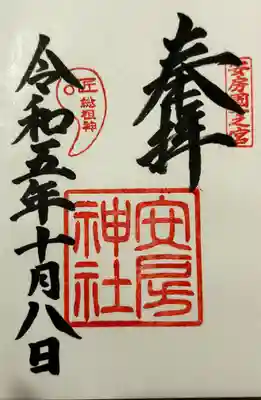 奉拝
安房國一之宮
安房神社
匠総祖神
令和五年十月八日